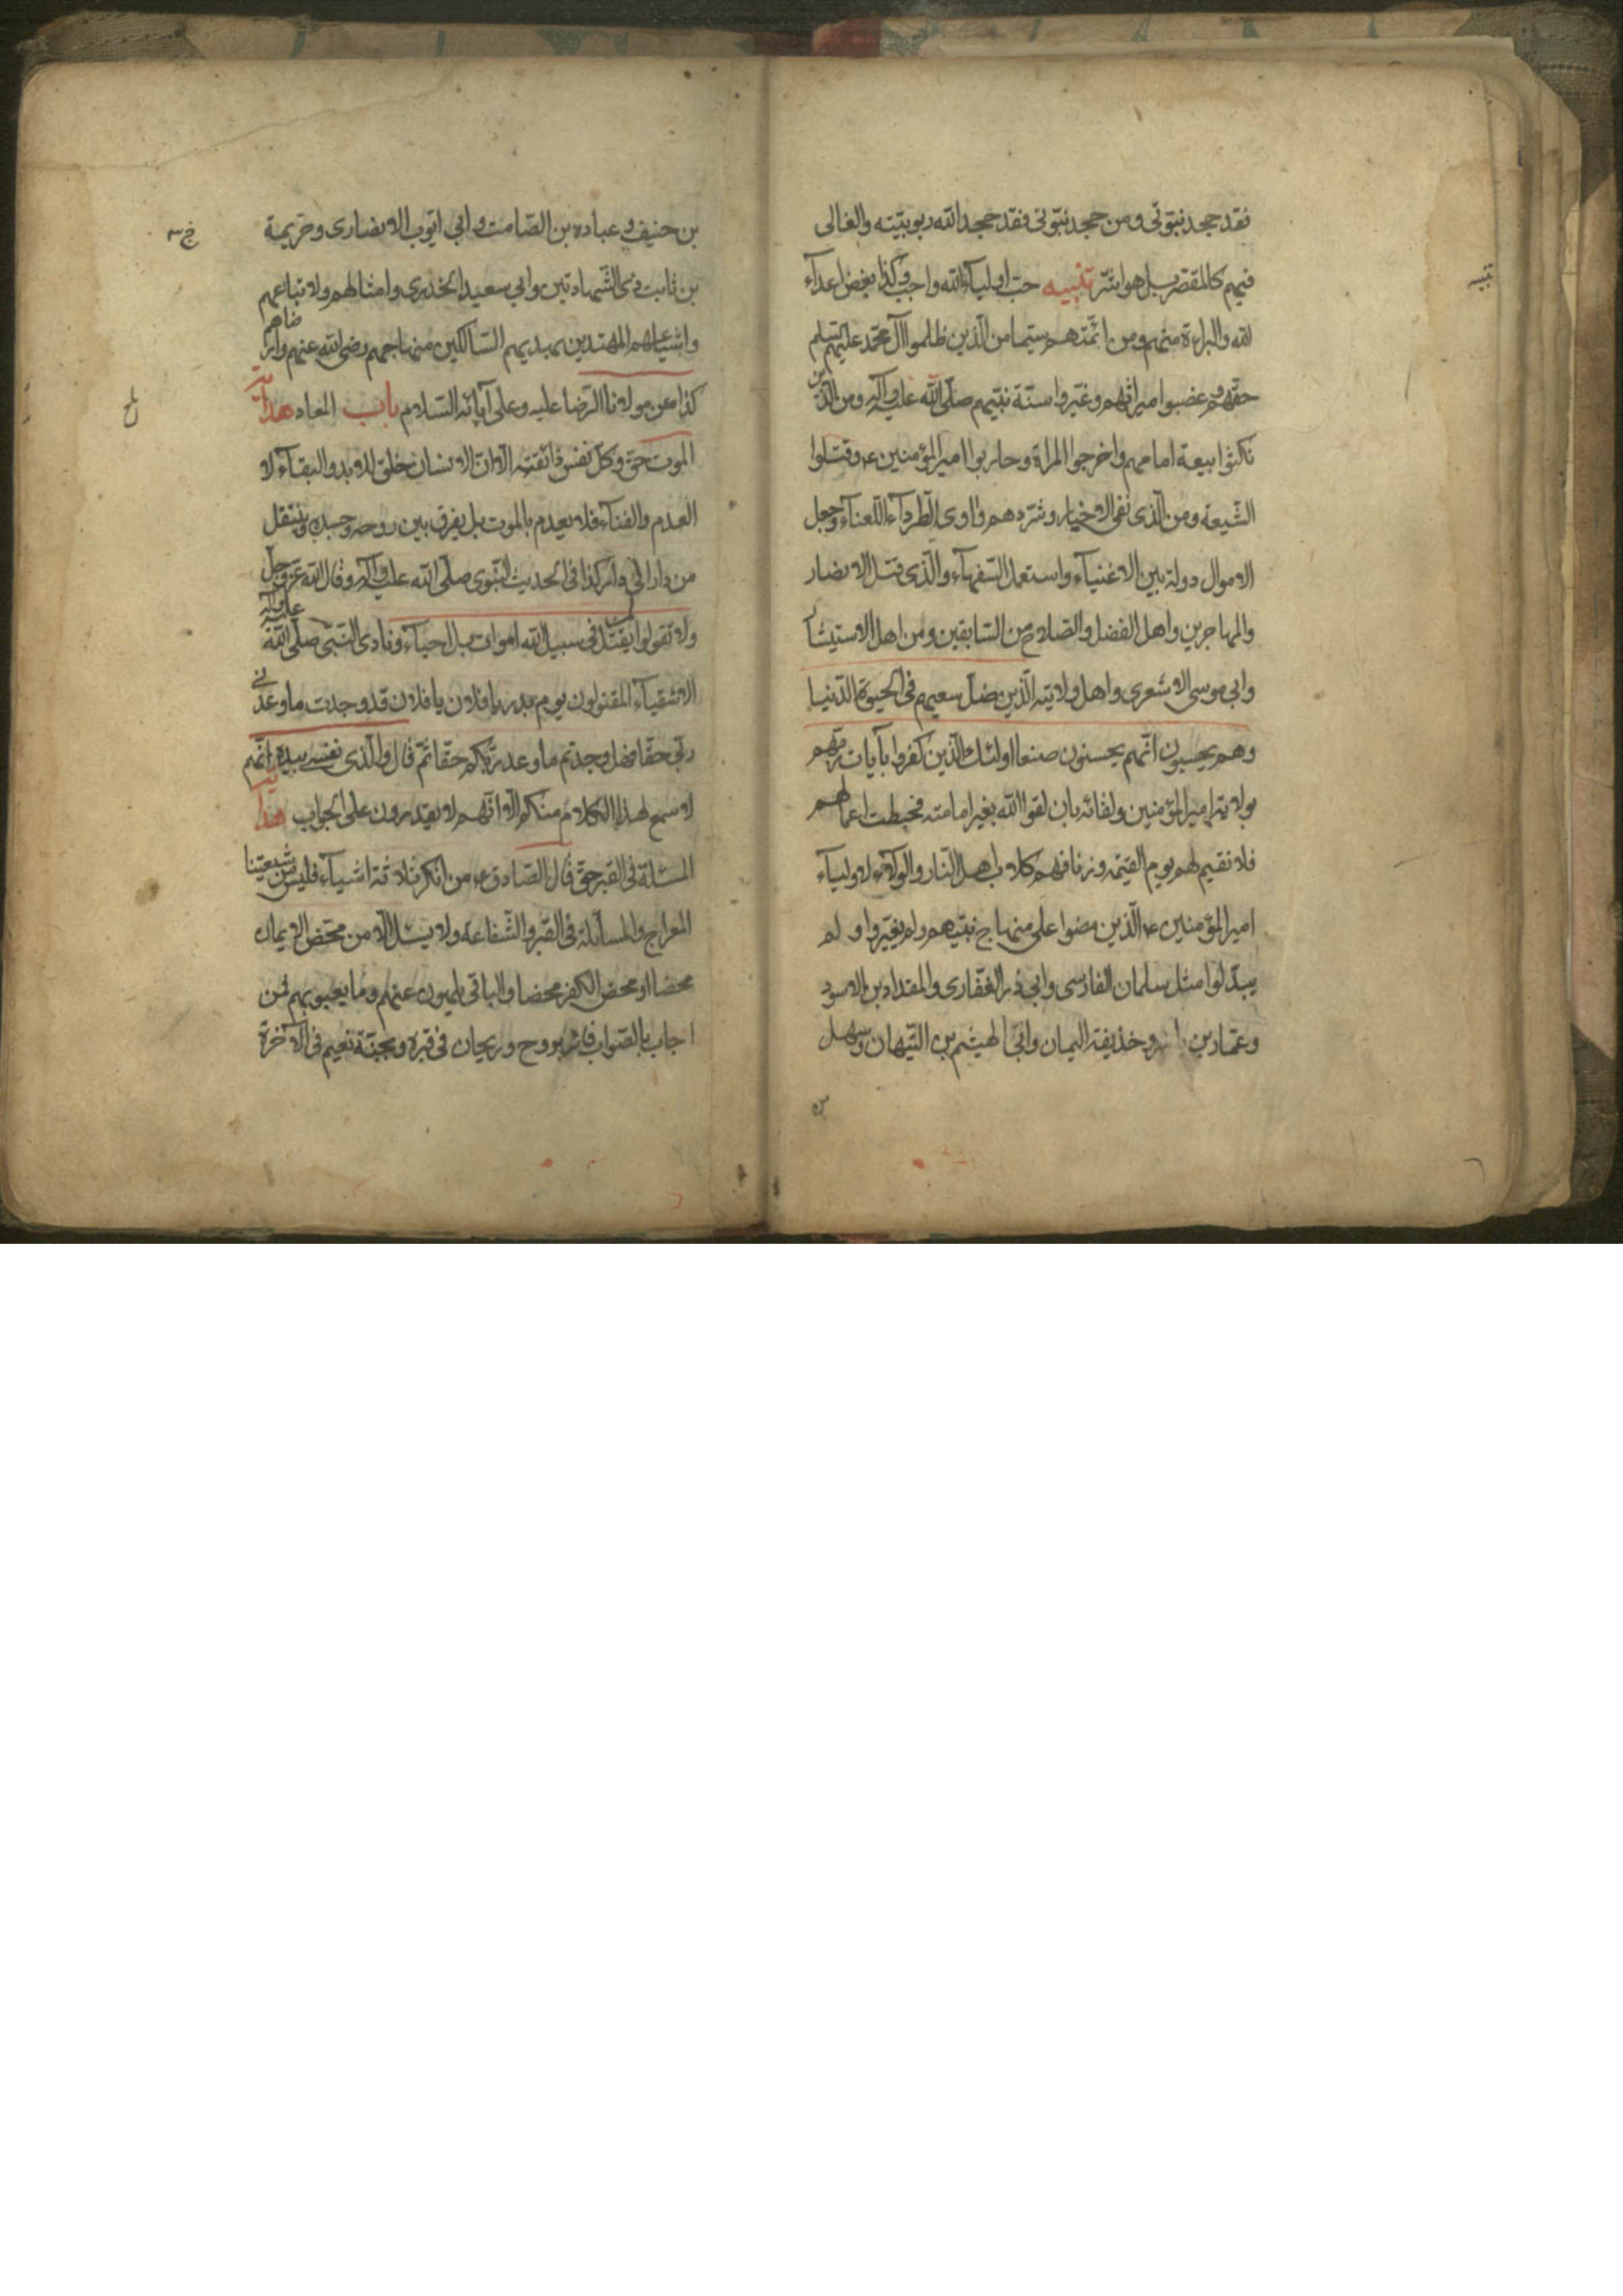 فقد جحد نبوّتى ومن جحد نبوّتى فقد جحد الله ربوبيّته والغالى
تنبيه
فيهم كالمقصّر بل هو اشرّ تنبيه حبّ اولياء الله واجب وكذا بغض اعداء
الله والبراءة منهم ومن ائمّتهم سيّما من الّذين ظلموا آل محمّد عليهم السلم
حقّهم وغصبوا ميراثهم وغيّروا سنّة نبيّهم صلّى الله عليه وآله ومن الّذين
نكثوا بيعة امامهم واخرجوا المراة وحاربوا امير المؤمنين ع وقتلوا
الشّيعة ومن الّذى نفى الاخيار وشرّدهم واوى الطّرداء اللّعناء وجعل
الاموال دولة بين الاغنياء واستعمل السّفهاء والّذى قتل الانصار
والمهاجرين واهل الفضل والصّلاح من السّابقين ومن اهل الاستيثار
وابى موسى الاشعرى واهل ولايته الّذين ضلّ سعيهم فى الحيوة الدّنيا
وهم يحسبون انّهم يحسنون صنعا اولئك الّذين كفروا بآيات ربّهم
بولاية امير المؤمنين ولقائه بان لقوا الله بغير امامته فحبطت اعمالهم
فلا نقيم لهم يوم القيمة وزنا فهم كلاب اهل النّار والولاء لاولياء
امير المؤمنين ع الّذين مضوا على منهاج نبيّهم ولم يغيّروا ولم
يبدّلوا مثل سلمان الفارسى وابى ذر الغفّارى والمقداد بن الاسود
وعمّار بن ياسر وحذيفة اليمان وابى الهيثم بن التّيهان وسهل
بن حنيف وعبادة بن الصّامت وابى ايّوب الانصارى وخزيمة
بن ثابت ذى الشّهادتين وابى سعيد الخدرى وامثالهم ولاتباعهم
واشياعهم المهتدين بهديهم السّالكين منهاجهم رضى الله عنهم وارضاهم
كذا عن مولانا الرّضا عليه وعلى آبائه السّلام باب المعاد هداية
الموت حقّ وكلّ نفس ذائقته الّا انّ الانسان خلق للابد والبقاء لا
العدم والفناء فلا يعدم بالموت بل يفرق بين روحه وجسده وينتقل
من دار الى دار كذا فى الحديث النّبوى صلّى الله عليه وآله وقال الله عزّ وجلّ
ولا تقولوا لمن يقتل فى سبيل الله اموات بل احياء ونادى النّبى صلّى الله عليه وآله
الاشقياء المقتولون يوم بدر يا فلان يا فلان قد وجدت ما وعدنى
ربّى حقّا فهل وجدتم ما وعد ربّكم حقّا ثمّ قال والّذى نفسى بيده انّهم
لاسمع لهذا الكلام منكم الّا انّهم لا يقدرون على الجواب هداية
المسئلة فى القبر حقّ قال الصّادق ع من انكر ثلاثة اشياء فليس من شيعتنا
المعراج والمسائلة فى القبر والشّفاعة ولا يسئل الّا من محّض الايمان
محضا او محض الكفر محضا والباقى يلهون عنهم وما يعبو بهم فمن
اجاب بالصّواب فاز بروح وريحان فى قبره وبجنّة نعيم فى الآخرة